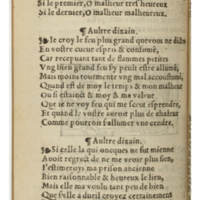 Si le premier, O malheur tres heureux
Si le dernier, O malheur malheureux.
¶ Aultre dizain.
Ie croy le feu plus grand que vous ne dites
En vostre cueur espris & consumé,
Car recepuant tant de flammes petites
Vng bien grand feu y deust estre allumé,
Mais moins tourmente vng mal accoustumé,
Quand est de moy le temps & mon malheur
Ou estaindra & moy & ma valeur
Que ie ne voy feu qui me sceut esprendre,
Et quand ie dy que plus n'ay de chaleur
Comme pourroit s'allumer vne cendre.
¶ Aultre dizain.
Si celle la qui oncques ne fut mienne
Auoit regret de ne me veoir plus sien,
I'estimeroys ma prison ancienne
Bien raisonnable & heureux le lien,
Mais elle ma voulu tant peu de bien
Que fuste à dueil croyez certainement